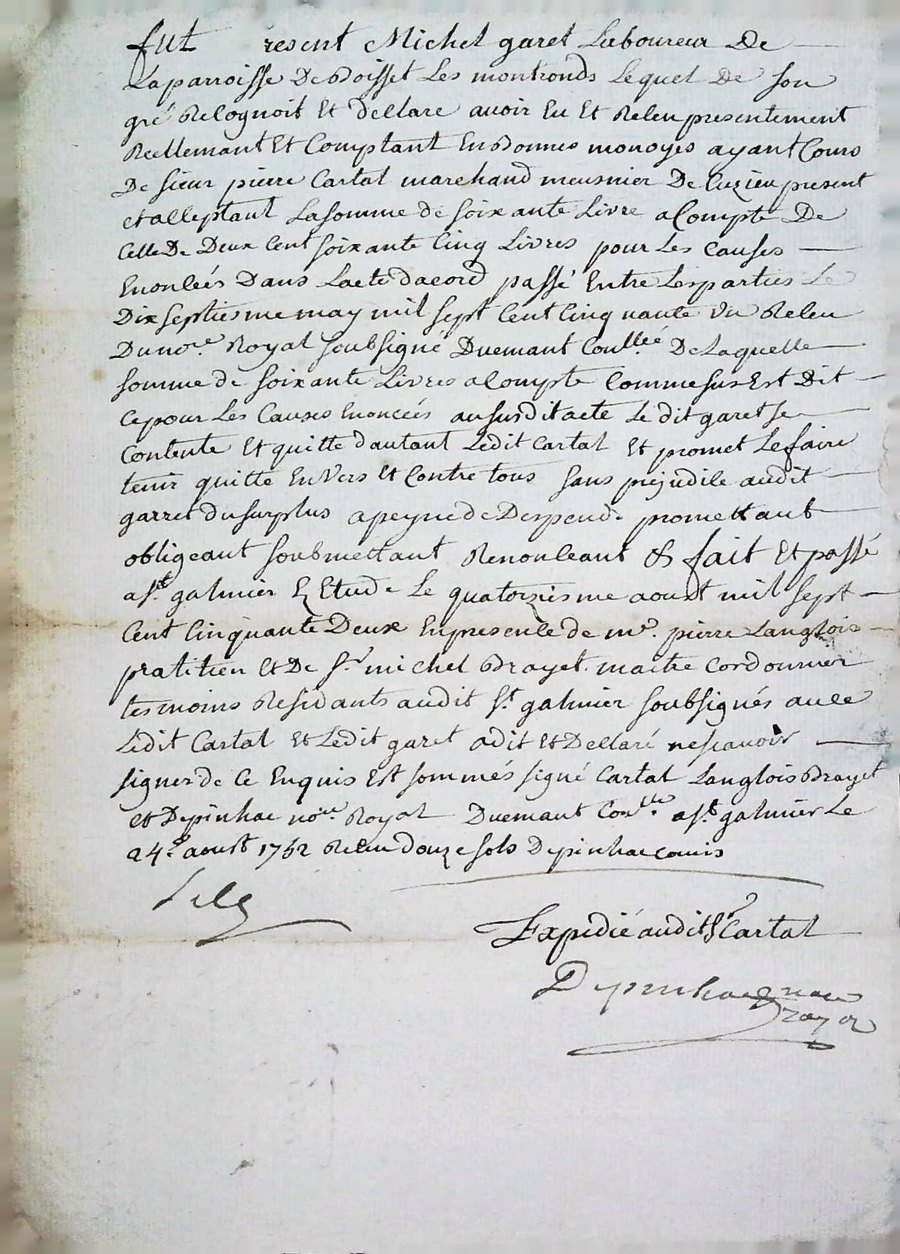 fut resent Michel garet Laboureur De
Laparroisse De Boisset Les montronds Lequel De son
gré Recognoit Et declare avoir Eu Et Receu presentement
Reellemant Et Comptant En Bonnes monoyes ayant Cours
De sieur pierre Cartal marchand meusnier De Cuzieu present
et acceptant La somme de soixante Livre a Compte De
Celle De Deux Cent soixante Cinq Livres pour Les Causes
Enoncéés Dans Lacte dacord passé Entre Les parties Le
Dix septiesme may mil sept Cent Cinquante un Receu
Du nore. Royal soubsigné Duemant Coullée De Laquelle
somme de soixante Livres a Compte Comme sus Est Dit
Ce pour Les Causes Enoncéés au susdit acte Le dit garet se
Contente Et quitte dautant Ledit Cartal Et promet Le faire
tenir quitte Envers Et Contre tous sans prejudice audit
garret du surplus a peyne de Despend. promettant
obligeant soubmettant Renonceant & fait Et passé
a st. galmier Etude Le quatorziesme aoust mil sept
Cent Cinquante Deux En presence de mr. pierre Langlois
pratitien Et De sr. michel Brayet maitre Cordonnier
tesmoins Residants audit st. galmier soubsignés avec
Ledit Cartal Et Ledit garet a dit Et Declaré ne scavoir
signer de Ce Enquis Est sommés signé Cartal Langlois Brayet
et Depinhac noire Royal Duemant Conlle. a st. galmier Le
24e. aoust 1752 Receu douze sols Depinhac comis
Expedié audit sr. Cartal
Depinhac